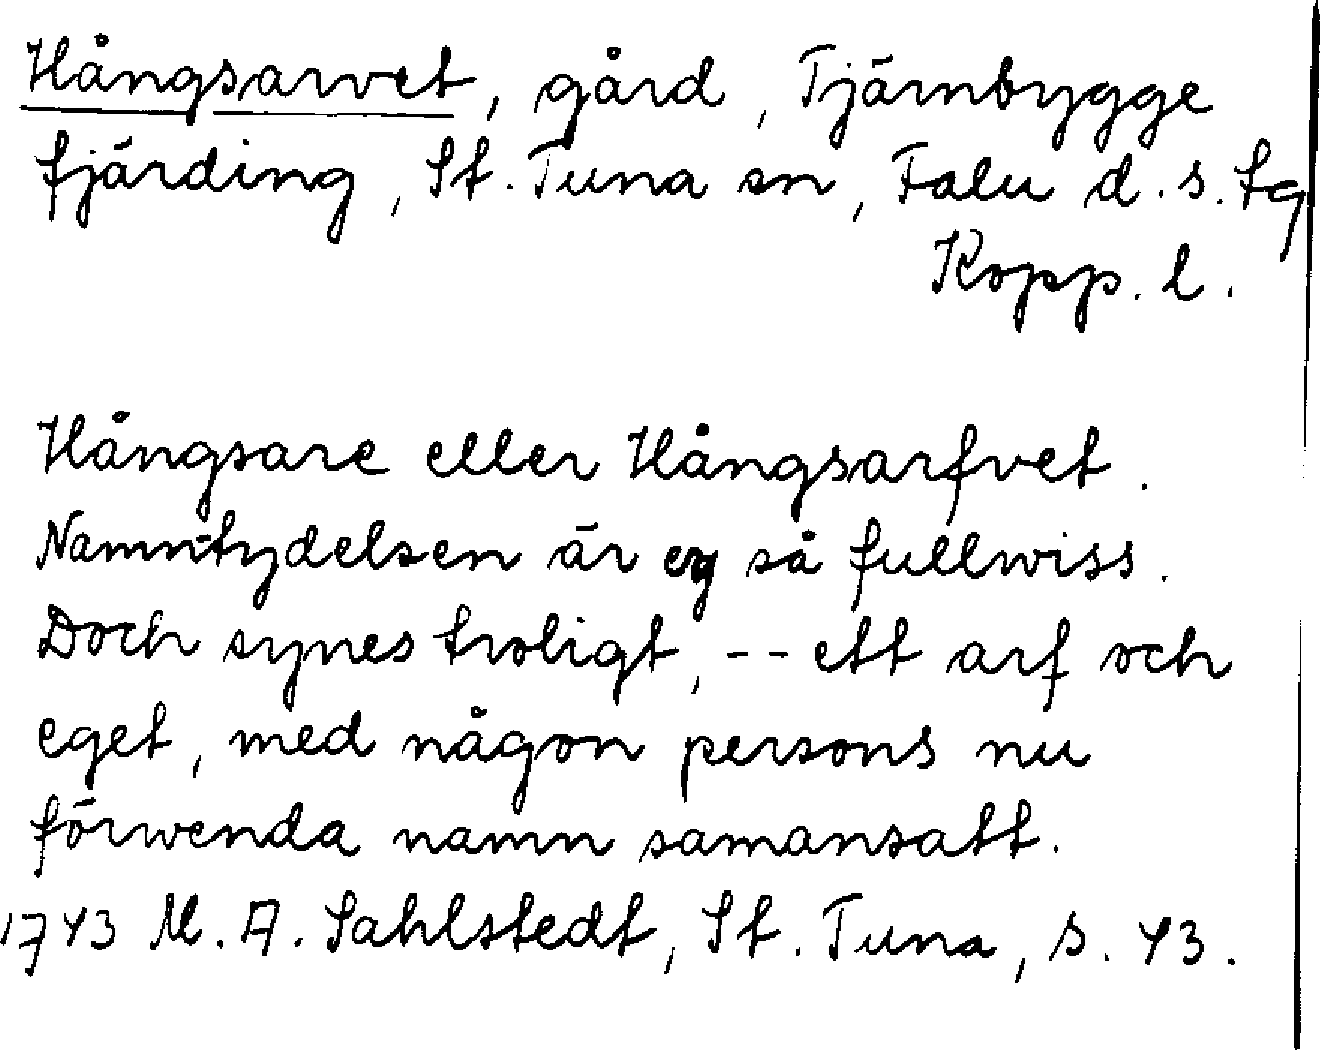 Hångsarvet, gård, Tjärnbygge
fjärding, St. Tuna sn, Falu d. s. tg
Kopp. l.
Hångsare eller Hångsarfvet.
Namntydelsen är ey så fullwiss.
Doch synes troligt, -- ett arf och
eget, med någon persons nu
förwenda namn samansatt.
1743 M. A. Sahlstedt, St. Tuna, s. 43.